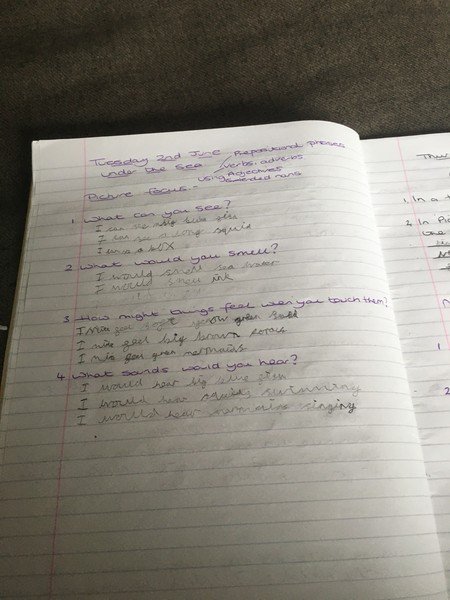 Tuesday 2nd June
Prepositional phrases
under the sea
verbs, adverbs
using Adjectives
extended nons
Picture Focus:-
1. What can you see?
I can see big blue fish
I can see a long squid
I a
2. What would you smell?
I would smell sea water
I would smell ink
3. How might things feel wen you touch them?
feel soft green
I feel big brown rocks
I green mermaids
4. What sands would you hear?
I would hear big blue fish
I would hear squids swimming
I would hear singing
Thur
1. In a
2. In Pic
1
2